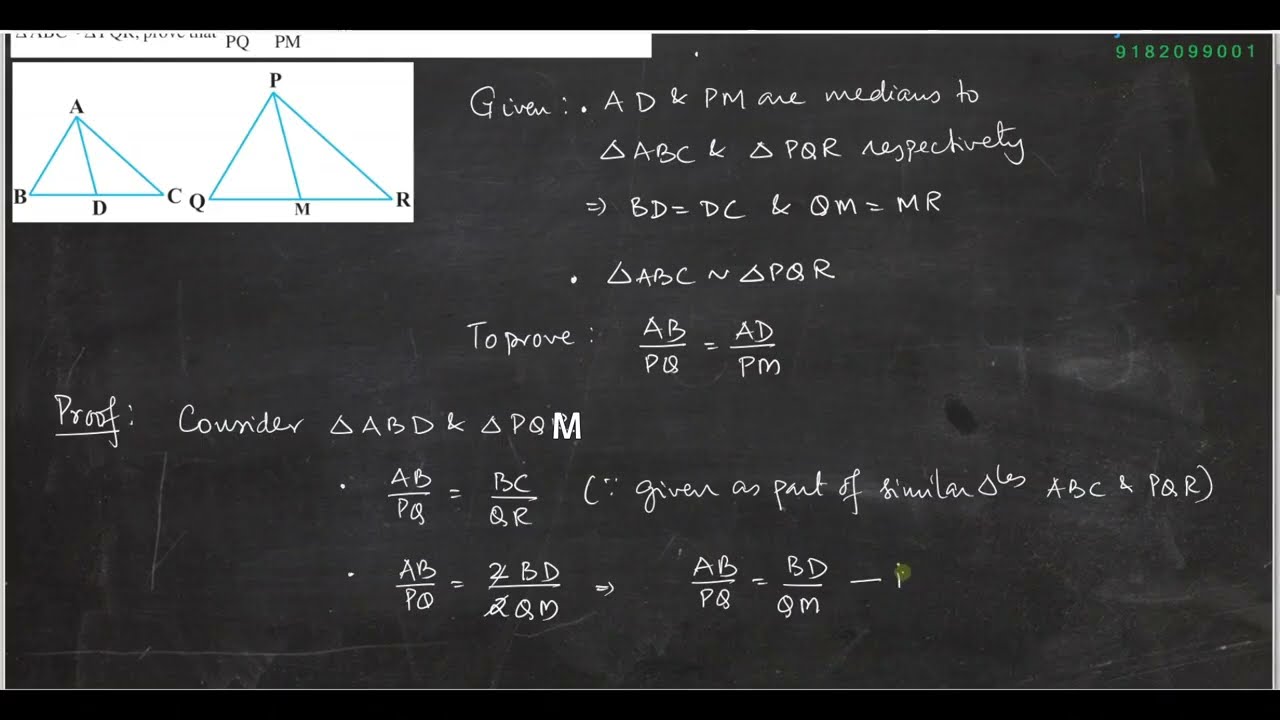 ΔABC ~ ΔPQR, prove that
PQ PM
9182099001
A
B D C
P
Q M R
Given: . AD & PM are medians to
ΔABC & ΔPQR respectively
⇒ BD = DC & QM = MR
. ΔABC ~ ΔPQR
To prove: AB/PQ = AD/PM
Proof: Consider ΔABD & ΔPQM
. AB/PQ = BC/QR (∵ given as part of similar Δles ABC & PQR)
. AB/PQ = 2BD/2QM ⇒ AB/PQ = BD/QM —